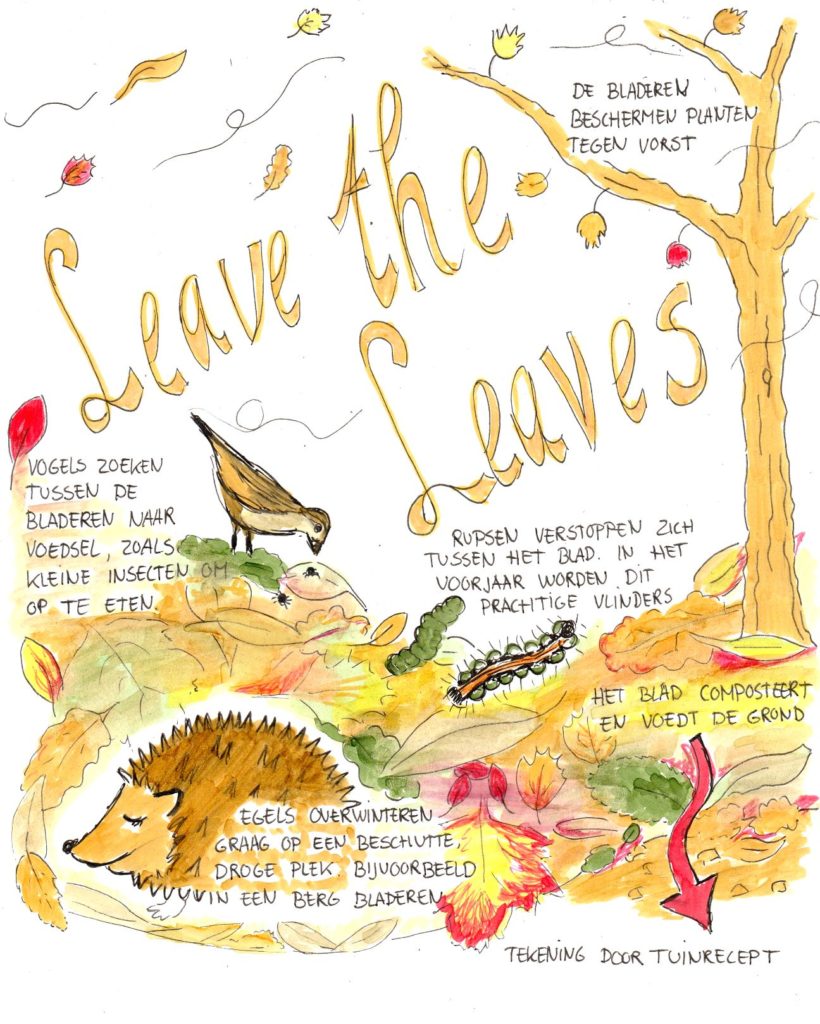 DE BLADEREN
BESCHERMEN PLANTEN
TEGEN VORST
Leave the
Leaves
VOGELS ZOEKEN
TUSSEN DE
BLADEREN NAAR
VOEDSEL, ZOALS
KLEINE INSECTEN OM
OP TE ETEN.
RUPSEN VERSTOPPEN ZICH
TUSSEN HET BLAD. IN HET
VOORJAAR WORDEN DIT
PRACHTIGE VLINDERS
HET BLAD COMPOSTEERT
EN VOEDT DE GROND
EGELS OVERWINTEREN
GRAAG OP EEN BESCHUTTE,
DROGE PLEK. BIJVOORBEELD
IN EEN BERG BLADEREN
TEKENING DOOR TUINRECEPT